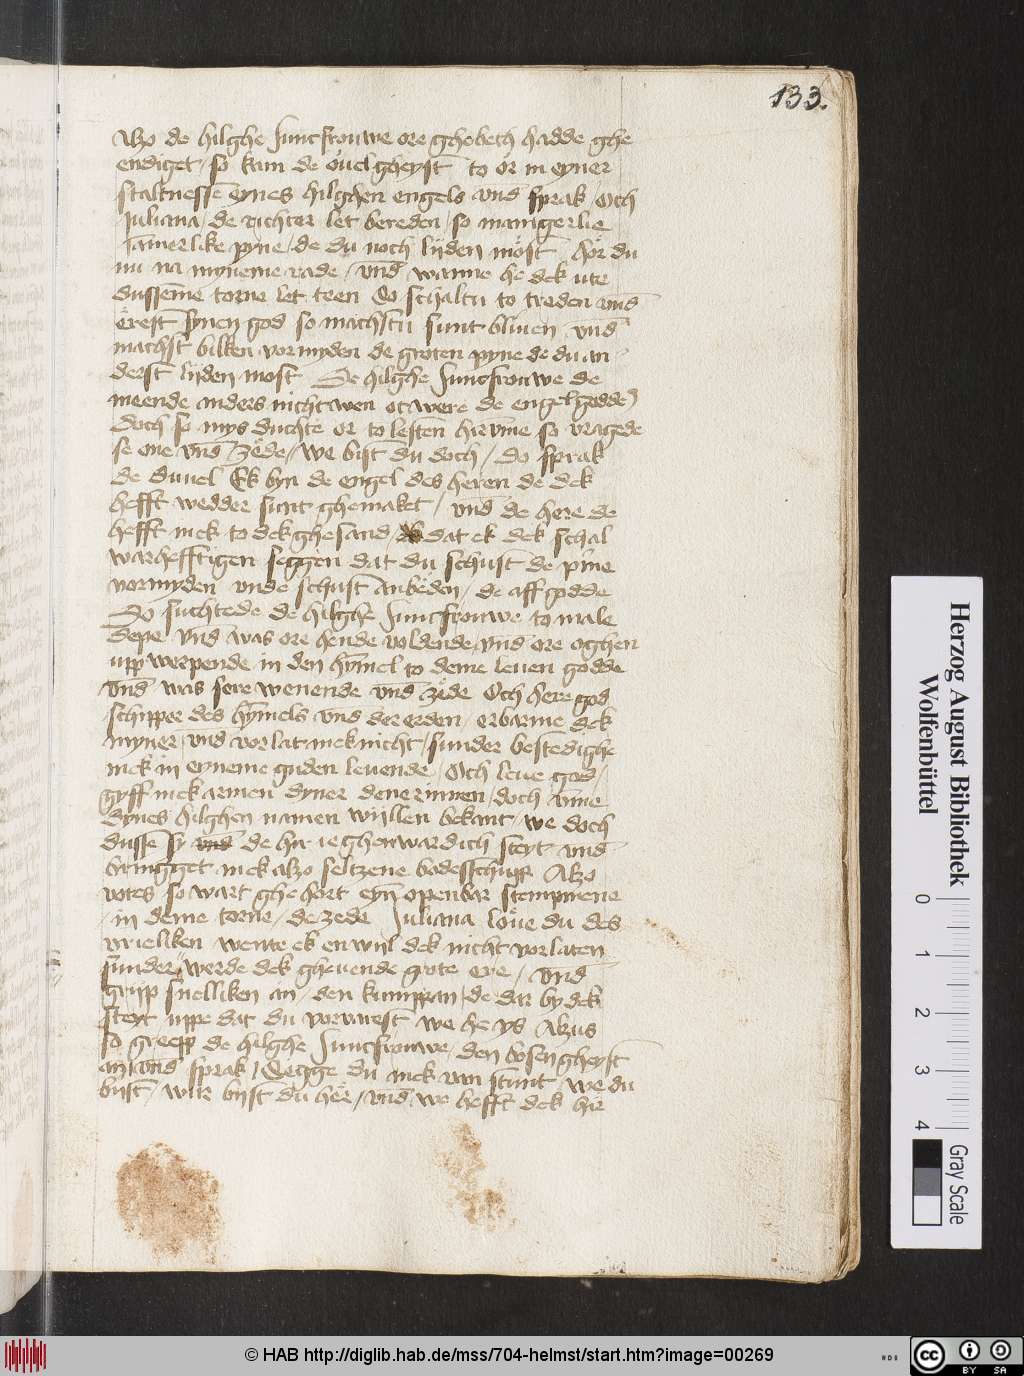 133.
Alzo de hilghe Juncfrouwe ore ghebeth hadde ghe
endiget / so kam de ouel gheyst to or in eyner
staltnesse eynes hilghen engels vnd sprak / Och
Juliana / de richter let bereden / so mannigerlie
Jamerlike pyne / de du noch lyden möst Hör du
nu na myneme rade / vnd wanne he dek ute
dusseme torne let teen So schaltu to treden vnd
erest synen god so machstu sunt bliuen vnd
machst bilken vormyden de groten pyne de du an
derst lyden most De hilghe Juncfrouwe de
meende anders nicht wen et were de engel godde
Doch so mys duchte or to lesten hirvme so vragede
se one vnd zede / we bist du doch / Do sprak
de duuel Ek byn de engel des heren de dek
hefft wedder sunt ghemaket / vnd de here de
hefft mek to dek ghesand dat ek dek schal
warhefftigen seggen dat du schust de pine
vormyden vnde schust anbeden / de aff godde
Do suchtede de hilghe Juncfrouwe to male
depe vnd was ore hende voldende vnd ore oghen
upp werpende in den hymel to deme leuen godde
vnd was sere wenende vnd zede Och here god
schipper des hymels vnd der erden / erbarme dek
myner vnd vorlat mek nicht / sunder bestedighe
mek in eyneme guden leuende / Och leue god /
gyff mek armen dyner denerinnen / doch vme
dynes hilghen namen wyllen bekant / we doch
dusse sy vnd de hir ieghenwardich steyt vnd
bringget mek alzo seltzene bodesschupp Alzo
votes so wart ghe hort eyn openbar stempmene
in deme torne / de zede Juliana löue du des
vrieliken wente ek en wyl dek nicht vorlaten
sunder werde dek gheuende grote ere / vnd
gripp snelliken an / den kumppan de dar by dek
steyt uppe dat du vorvarest we he ys Alzus
so greepp de hilghe Juncfrouwe / den bosen gheyst
an vnd sprak / Segge du mek van stunt / we du
byst / wur byst du her / vnd we hefft dek hir
Herzog August Bibliothek
Wolfenbüttel
0 1 2 3 4
Gray Scale
© HAB http://diglib.hab.de/mss/704-helmst/start.htm?image=00269
cc BY SA